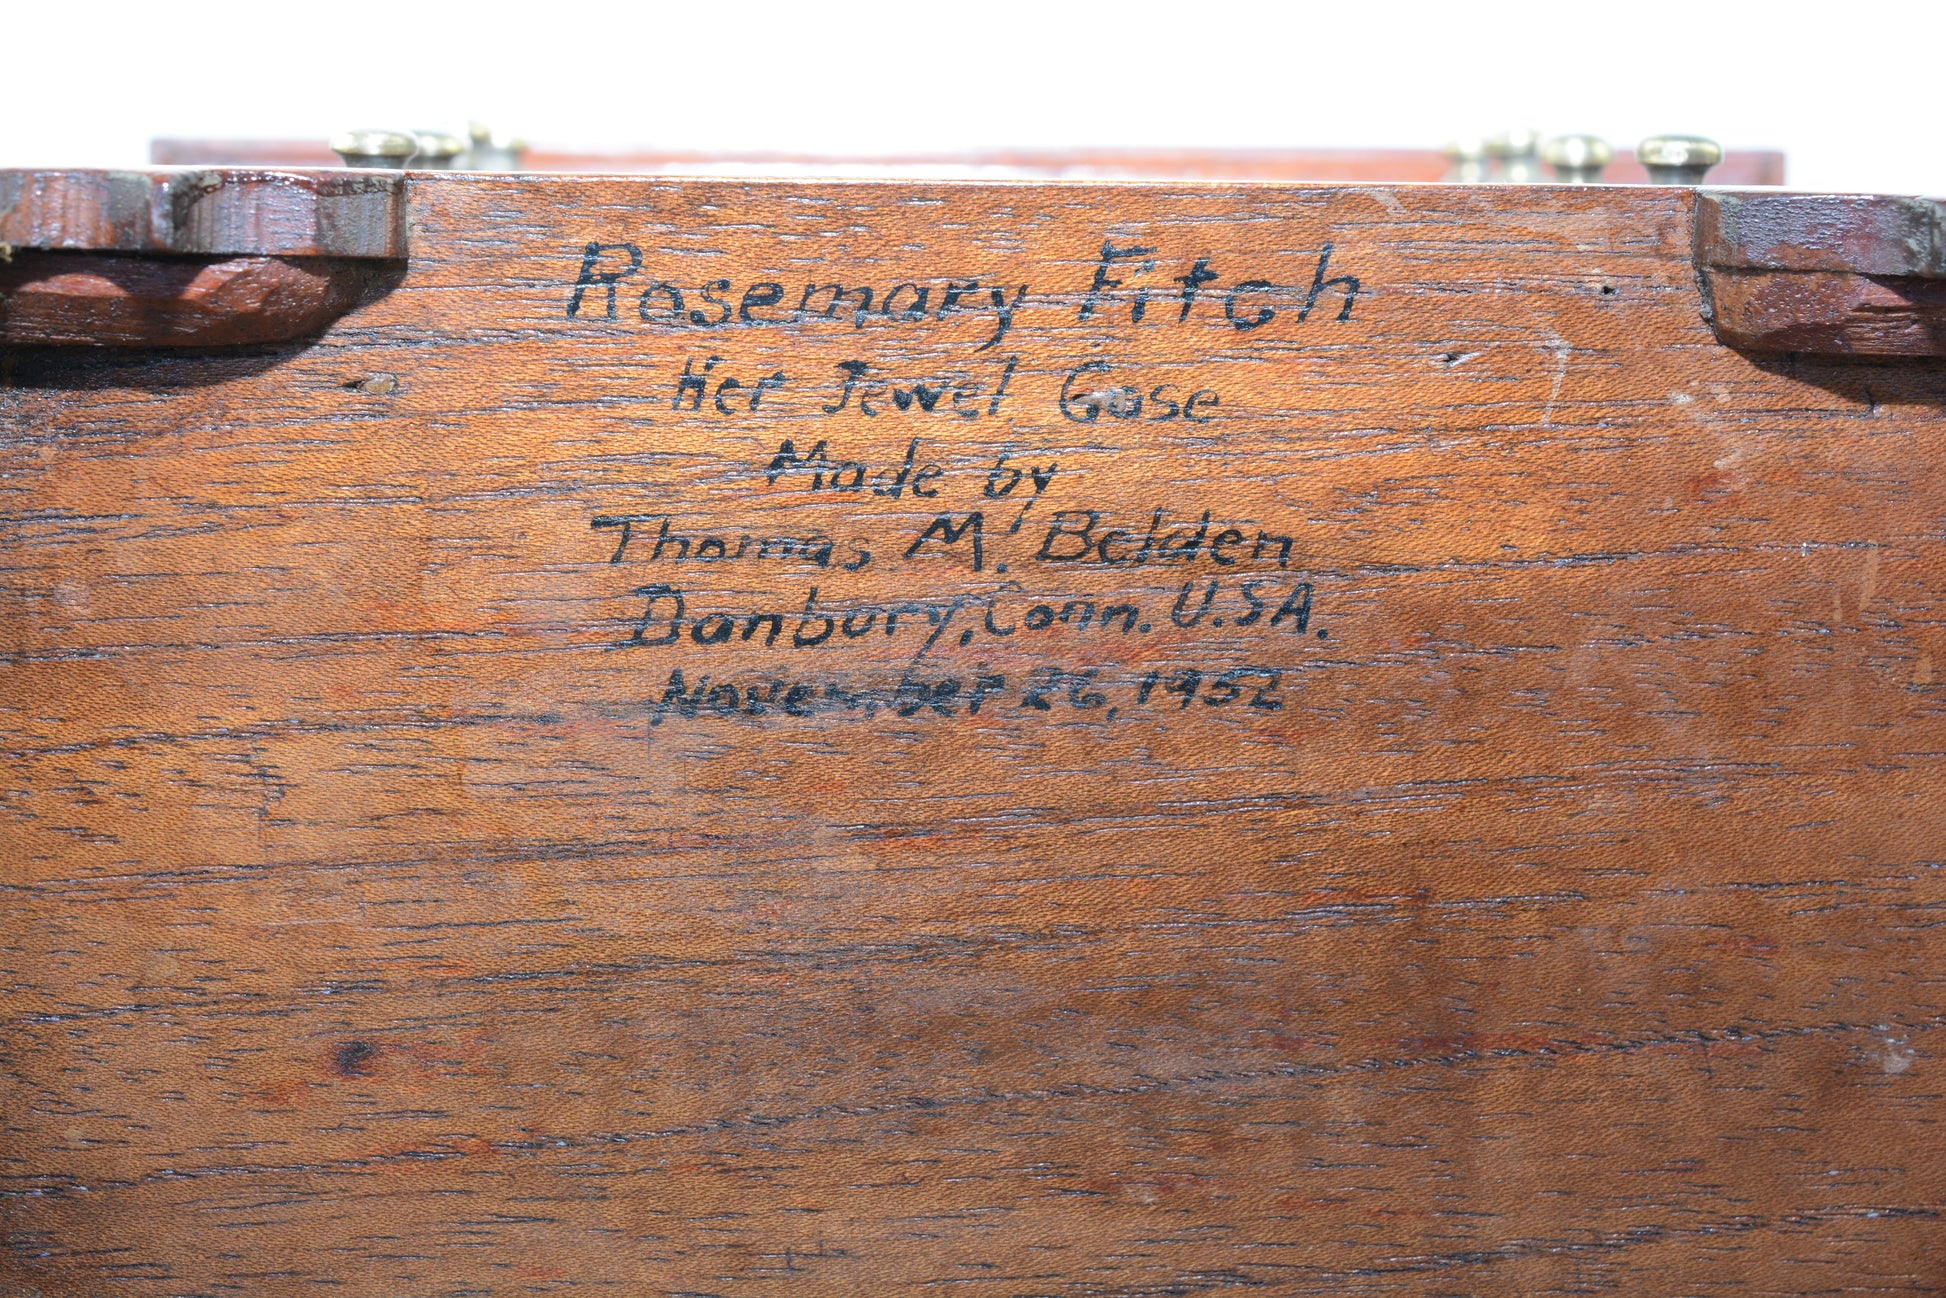 Rosemary Fitch
Her Jewel Case
Made by
Thomas M. Belden
Danbury, Conn. U.S.A.
November 26, 1952